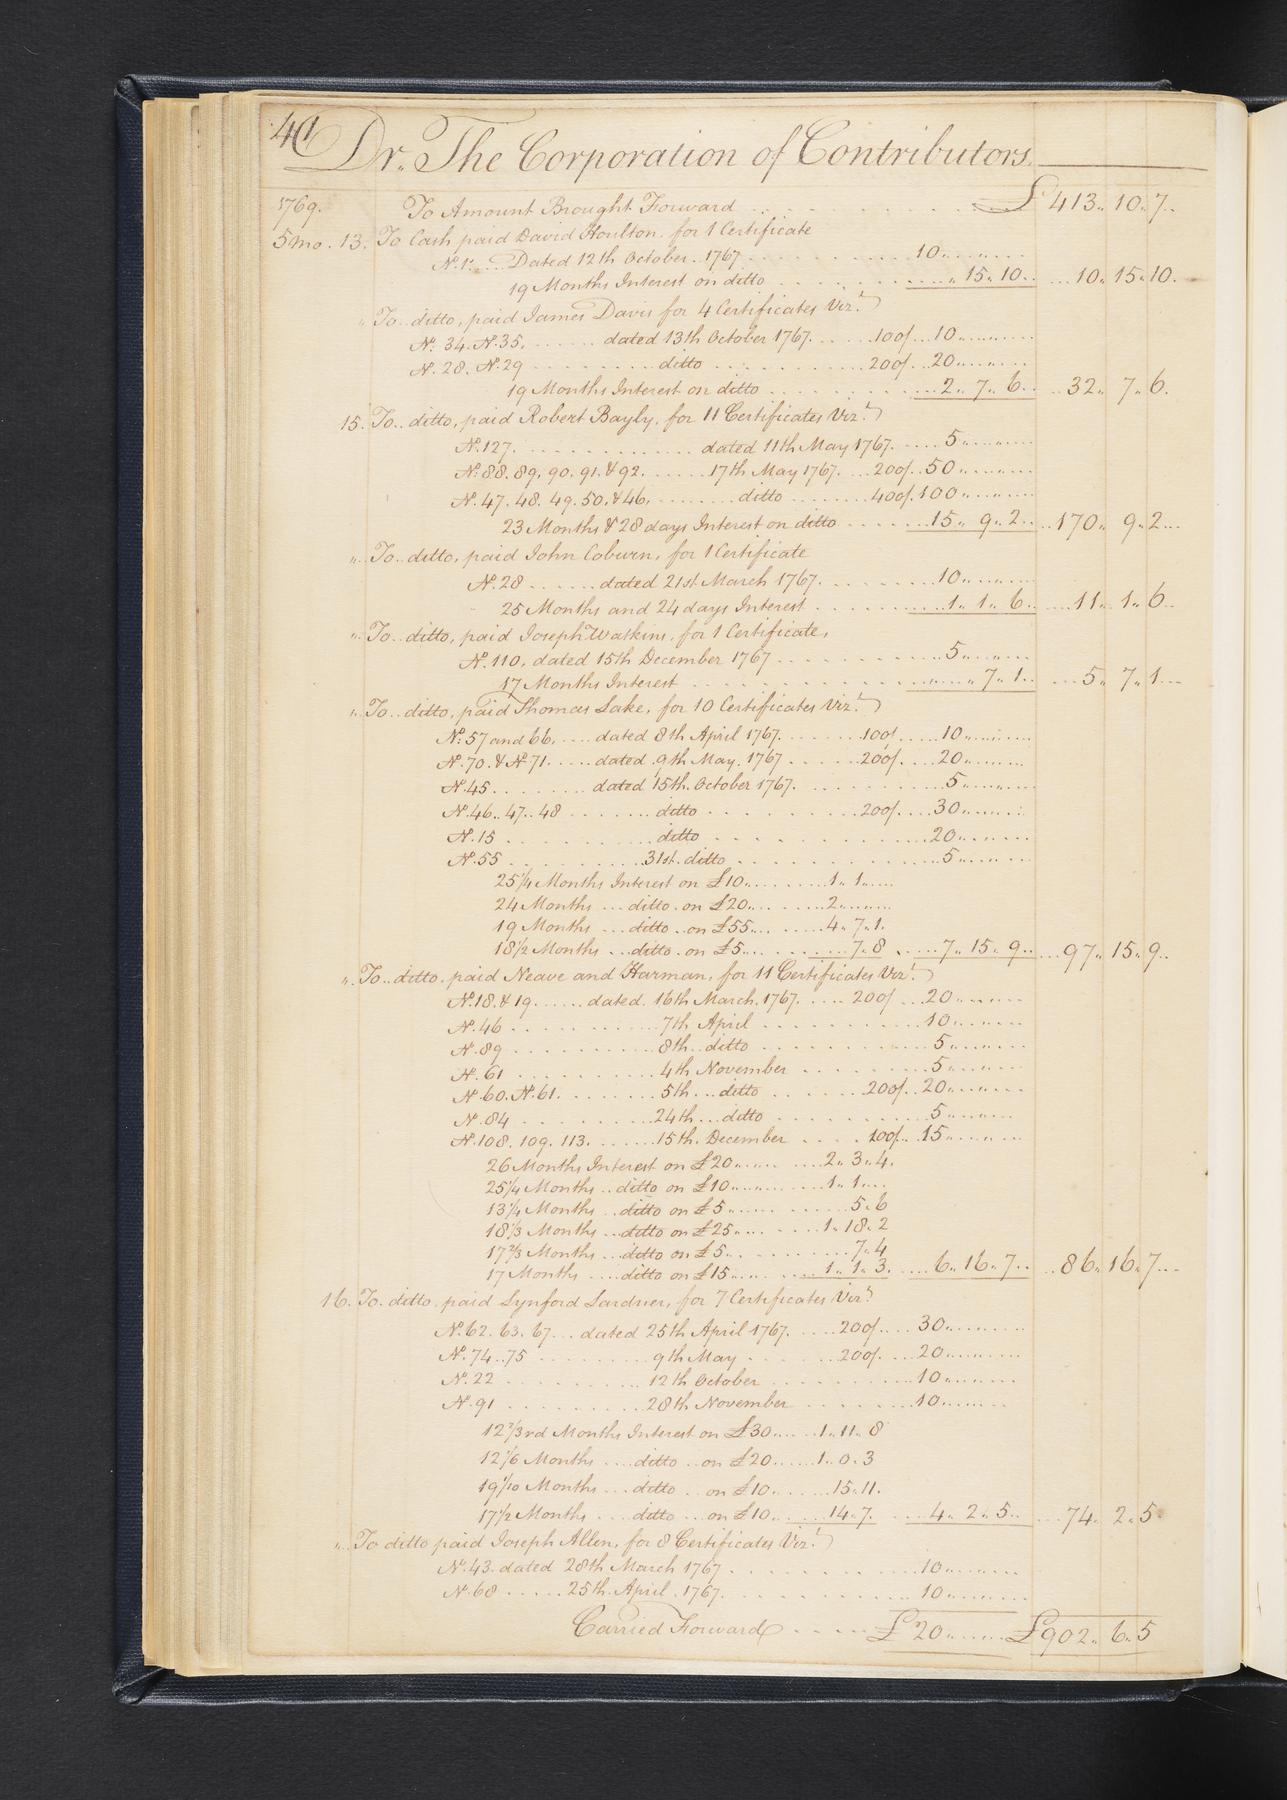 40 Dr. The Corporation of Contributors.
1769. To Amount Brought Forward £413.. 10.. 7..
5mo. 13. To Cash paid David Houlton, for 1 Certificate
No. 1. Dated 12th October. 1767 10
19 Months Interest on ditto 15.. 10 10.. 15.. 10.
" To ditto, paid James Davis for 4 Certificates Vizt.
No. 34. No. 35. dated 13th October 1767. 100/. 10
No. 28. No. 29 ditto 200/. 20
19 Months Interest on ditto 2.. 7.. 6 32.. 7.. 6.
15. To ditto, paid Robert Bayly, for 11 Certificates Vizt.
No. 127. dated 11th May 1767. 5
No. 88. 89. 90. 91. & 92. 17th May 1767. 200/. 50
No. 47. 48. 49. 50. & 46. ditto 400/. 100
23 Months & 28 days Interest on ditto 15.. 9.. 2 170.. 9.. 2
" To ditto, paid John Coburn, for 1 Certificate
No. 28 dated 21st March 1767. 10
25 Months and 24 days Interest 1.. 1.. 6 11.. 1.. 6
" To ditto, paid Joseph Watkins, for 1 Certificate,
No. 110, dated 15th December 1767 5
17 Months Interest 7.. 1 5.. 7.. 1
" To ditto, paid Thomas Lake, for 10 Certificates Vizt.
No. 57 and 66. dated 8th April 1767. 100/ 10
No. 70. & No. 71. dated 9th May. 1767 200/. 20
No. 45 dated 15th. October 1767. 5
No. 46.. 47.. 48 ditto 200/. 30
No. 15 ditto 20
No. 55 31st. ditto 5
25 1/4 Months Interest on £10 1.. 1
24 Months ditto on £20 2
19 Months ditto on £55 4.. 7.. 1.
18 1/2 Months ditto on £5 7.. 8 7.. 15.. 9 97.. 15.. 9
" To ditto. paid Neave and Harman, for 11 Certificates Vizt.
No. 18. & 19. dated 16th March. 1767. 200/ 20
No. 46 7th April 10
No. 89 8th ditto 5
No. 61 4th November 5
No. 60. No. 61. 5th ditto 200/. 20
No. 84 24th ditto 5
No. 108. 109. 113. 15th. December 100/. 15
26 Months Interest on £20 2.. 3.. 4.
25 1/4 Months ditto on £10 1.. 1
13 1/4 Months ditto on £5 5.. 6
18 1/3 Months ditto on £25 1.. 18.. 2
17 2/3 Months ditto on £5 7.. 4
17 Months ditto on £15 1.. 1.. 3. 6.. 16.. 7 86.. 16.. 7
16. To ditto, paid Lynford Lardner, for 7 Certificates Vizt.
No. 62. 63. 67 dated 25th April 1767. 200/. 30
No. 74.. 75 9th May 200/. 20
No. 22 12th October 10
No. 91 28th November 10
12 2/3rd Months Interest on £30 1.. 11.. 8
12 1/6 Months ditto on £20 1.. 0.. 3
19 1/10 Months ditto on £10 15.. 11.
17 1/2 Months ditto on £10 14.. 7. 4.. 2.. 5 74.. 2.. 5
" To ditto paid Joseph Allen, for 8 Certificates Vizt.
No. 43. dated 28th March 1767 10
No. 68 25th. April. 1767. 10
Carried Forward £20 £902.. 6.. 5